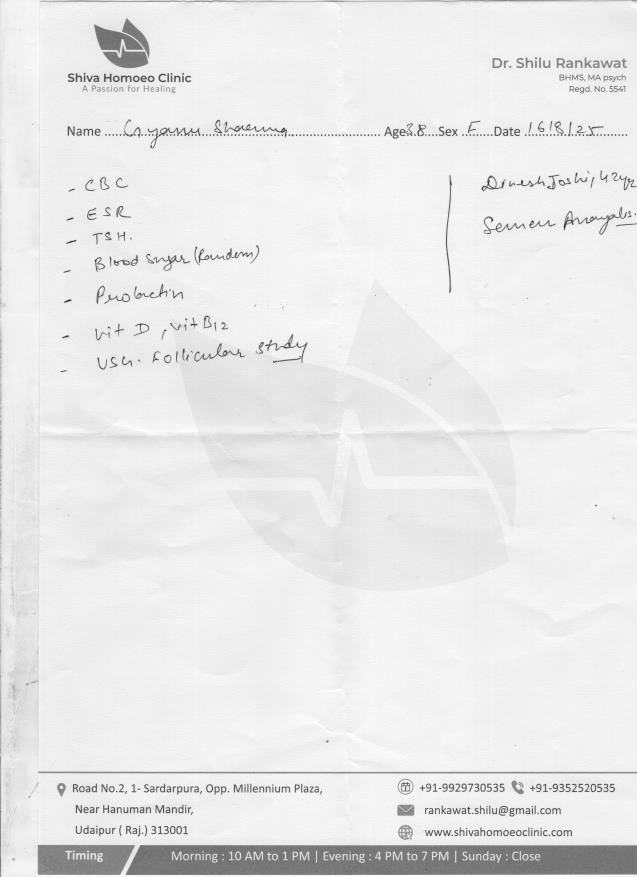 Shiva Homoeo Clinic
A Passion for Healing
Dr. Shilu Rankawat
BHMS, MA psych
Regd. No. 5541
Name ..... Sharma ..... Age 38 Sex F Date 16/8/25
- CBC
- ESR
- TSH.
- Blood Sugar (Random)
- Prolactin
- Vit D, Vit B12
- USG. Follicular study
Dinesh Joshi, 42yr
Semen Anaysis.
Road No.2, 1- Sardarpura, Opp. Millennium Plaza,
Near Hanuman Mandir,
Udaipur ( Raj.) 313001
+91-9929730535 +91-9352520535
rankawat.shilu@gmail.com
www.shivahomoeoclinic.com
Timing Morning : 10 AM to 1 PM | Evening : 4 PM to 7 PM | Sunday : Close